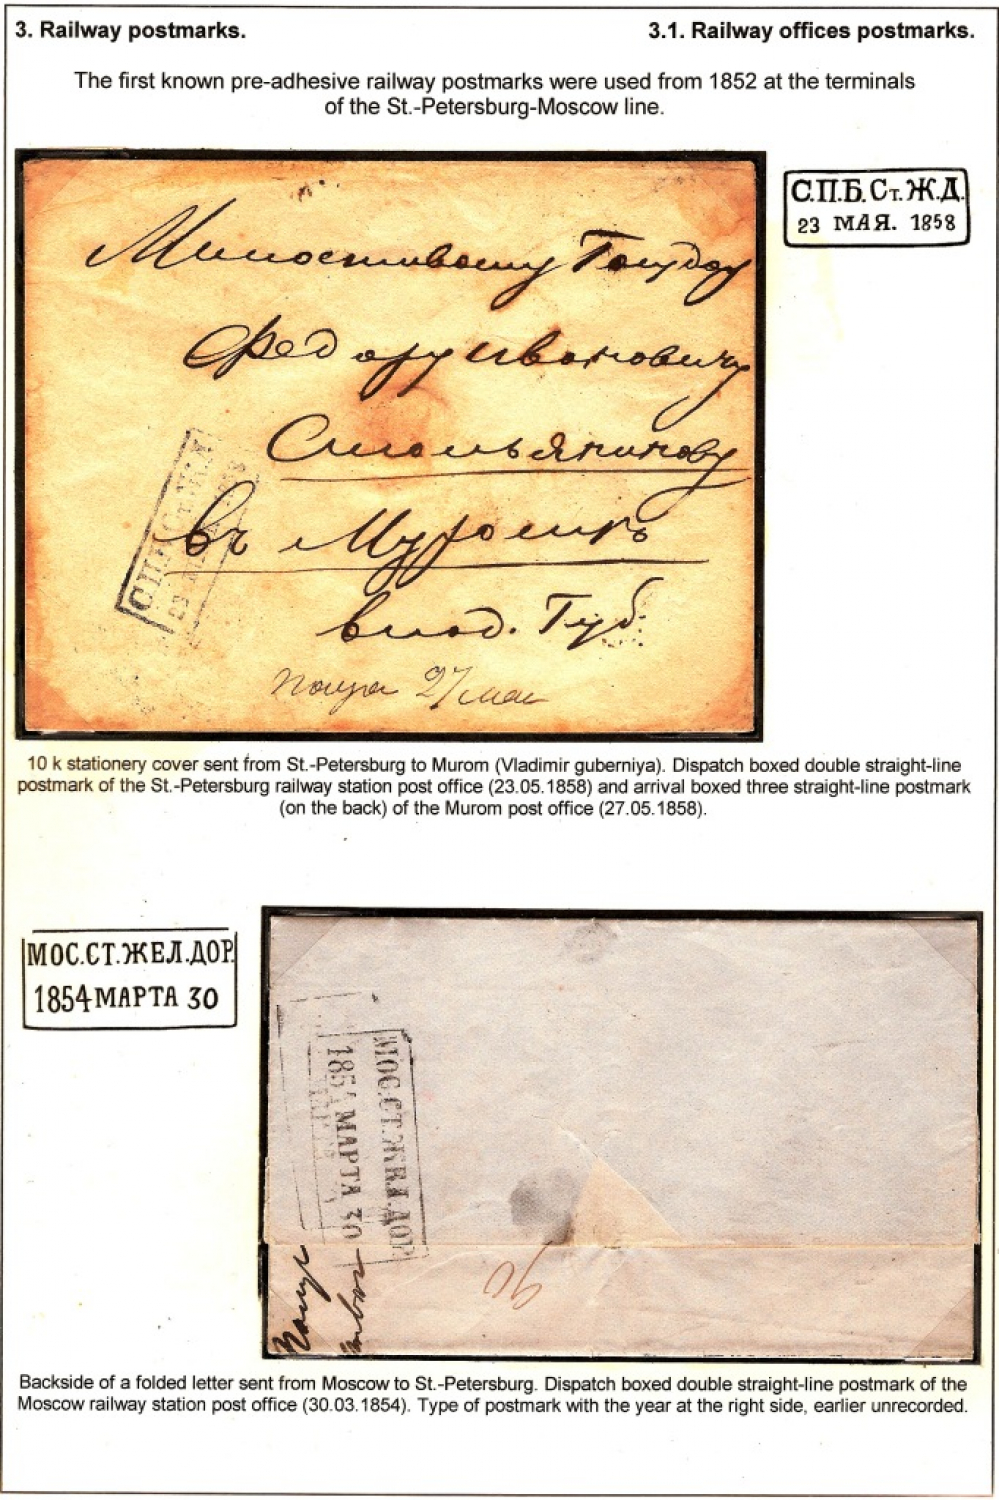 3. Railway postmarks.
3.1. Railway offices postmarks.
The first known pre-adhesive railway postmarks were used from 1852 at the terminals
of the St.-Petersburg-Moscow line.
С.П.Б.Ст.Ж.Д.
23 МАЯ. 1858
Милостивому Госудрю
Федору Ивановичу
Смольянинову
въ Муромъ
влад. Губ.
27 мая
10 k stationery cover sent from St.-Petersburg to Murom (Vladimir guberniya). Dispatch boxed double straight-line
postmark of the St.-Petersburg railway station post office (23.05.1858) and arrival boxed three straight-line postmark
(on the back) of the Murom post office (27.05.1858).
МОС.СТ.ЖЕЛ.ДОР.
1854 МАРТА 30
МОС.СТ.ЖЕЛ.ДОР.
1854 МАРТА 30
Backside of a folded letter sent from Moscow to St.-Petersburg. Dispatch boxed double straight-line postmark of the
Moscow railway station post office (30.03.1854). Type of postmark with the year at the right side, earlier unrecorded.